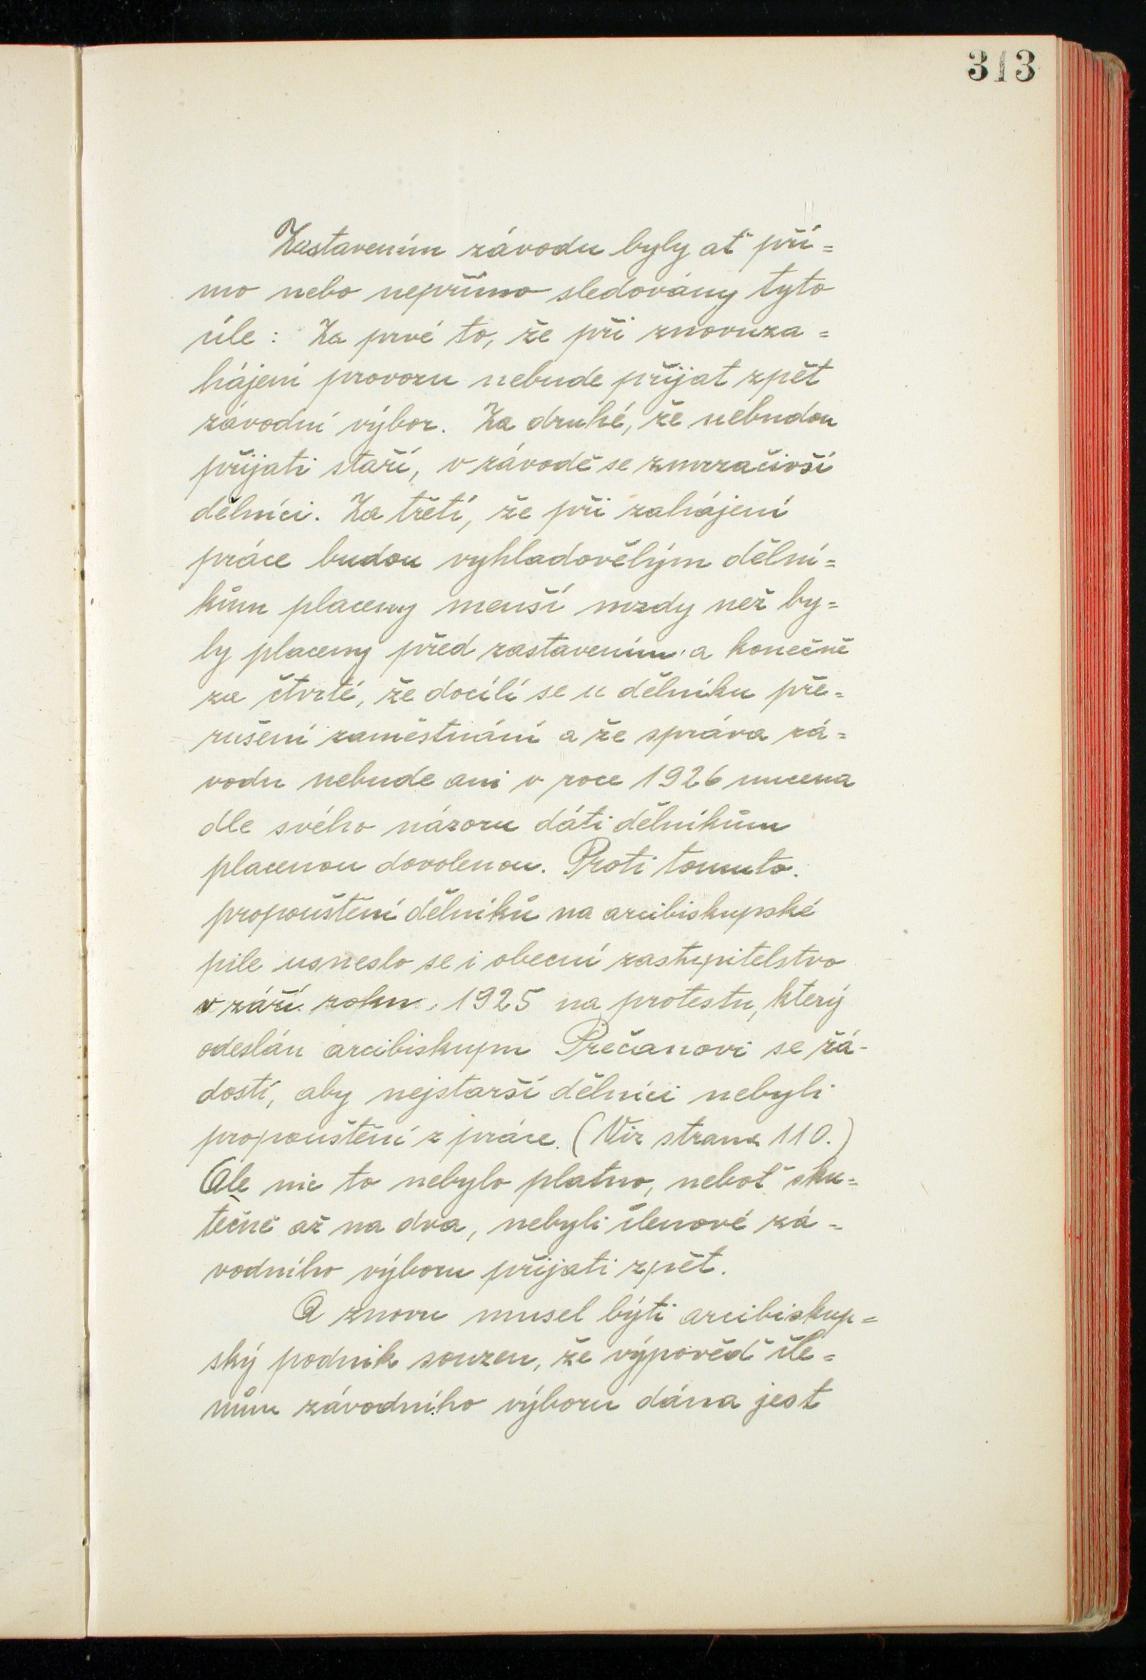 313
Zastavením závodu byly ať pří=
mo nebo nepřímo sledovány tyto
cíle: Za prvé to, že při znovuza=
hájení provozu nebude přijat zpět
závodní výbor. Za druhé, že nebudou
přijati staří, v závodě se zmrzačivší
dělníci. Za třetí, že při zahájení
práce budou vyhladovělým dělní=
kům placeny menší mzdy než by=
ly placeny před zastavením a konečně
za čtvrté, že docílí se u dělníku pře=
rušení zaměstnání a že správa zá=
vodu nebude ani v roce 1926 nucena
dle svého názoru dáti dělníkům
placenou dovolenou. Proti tomuto
propouštění dělníků na arcibiskupské
pile usneslo se i obecní zastupitelstvo
v září roku 1925 na protestu, který
odeslán arcibiskupu Prečanovi se žá-
dostí, aby nejstarší dělníci nebyli
propouštění z práce. (Viz strana 110.)
Ale nic to nebylo platno, neboť sku=
tečně až na dva, nebyli členové zá-
vodního výboru přijati zpět.
A znovu musel býti arcibiskup=
ský podnik souzen, že výpověď čle=
nům závodního výboru dána jest